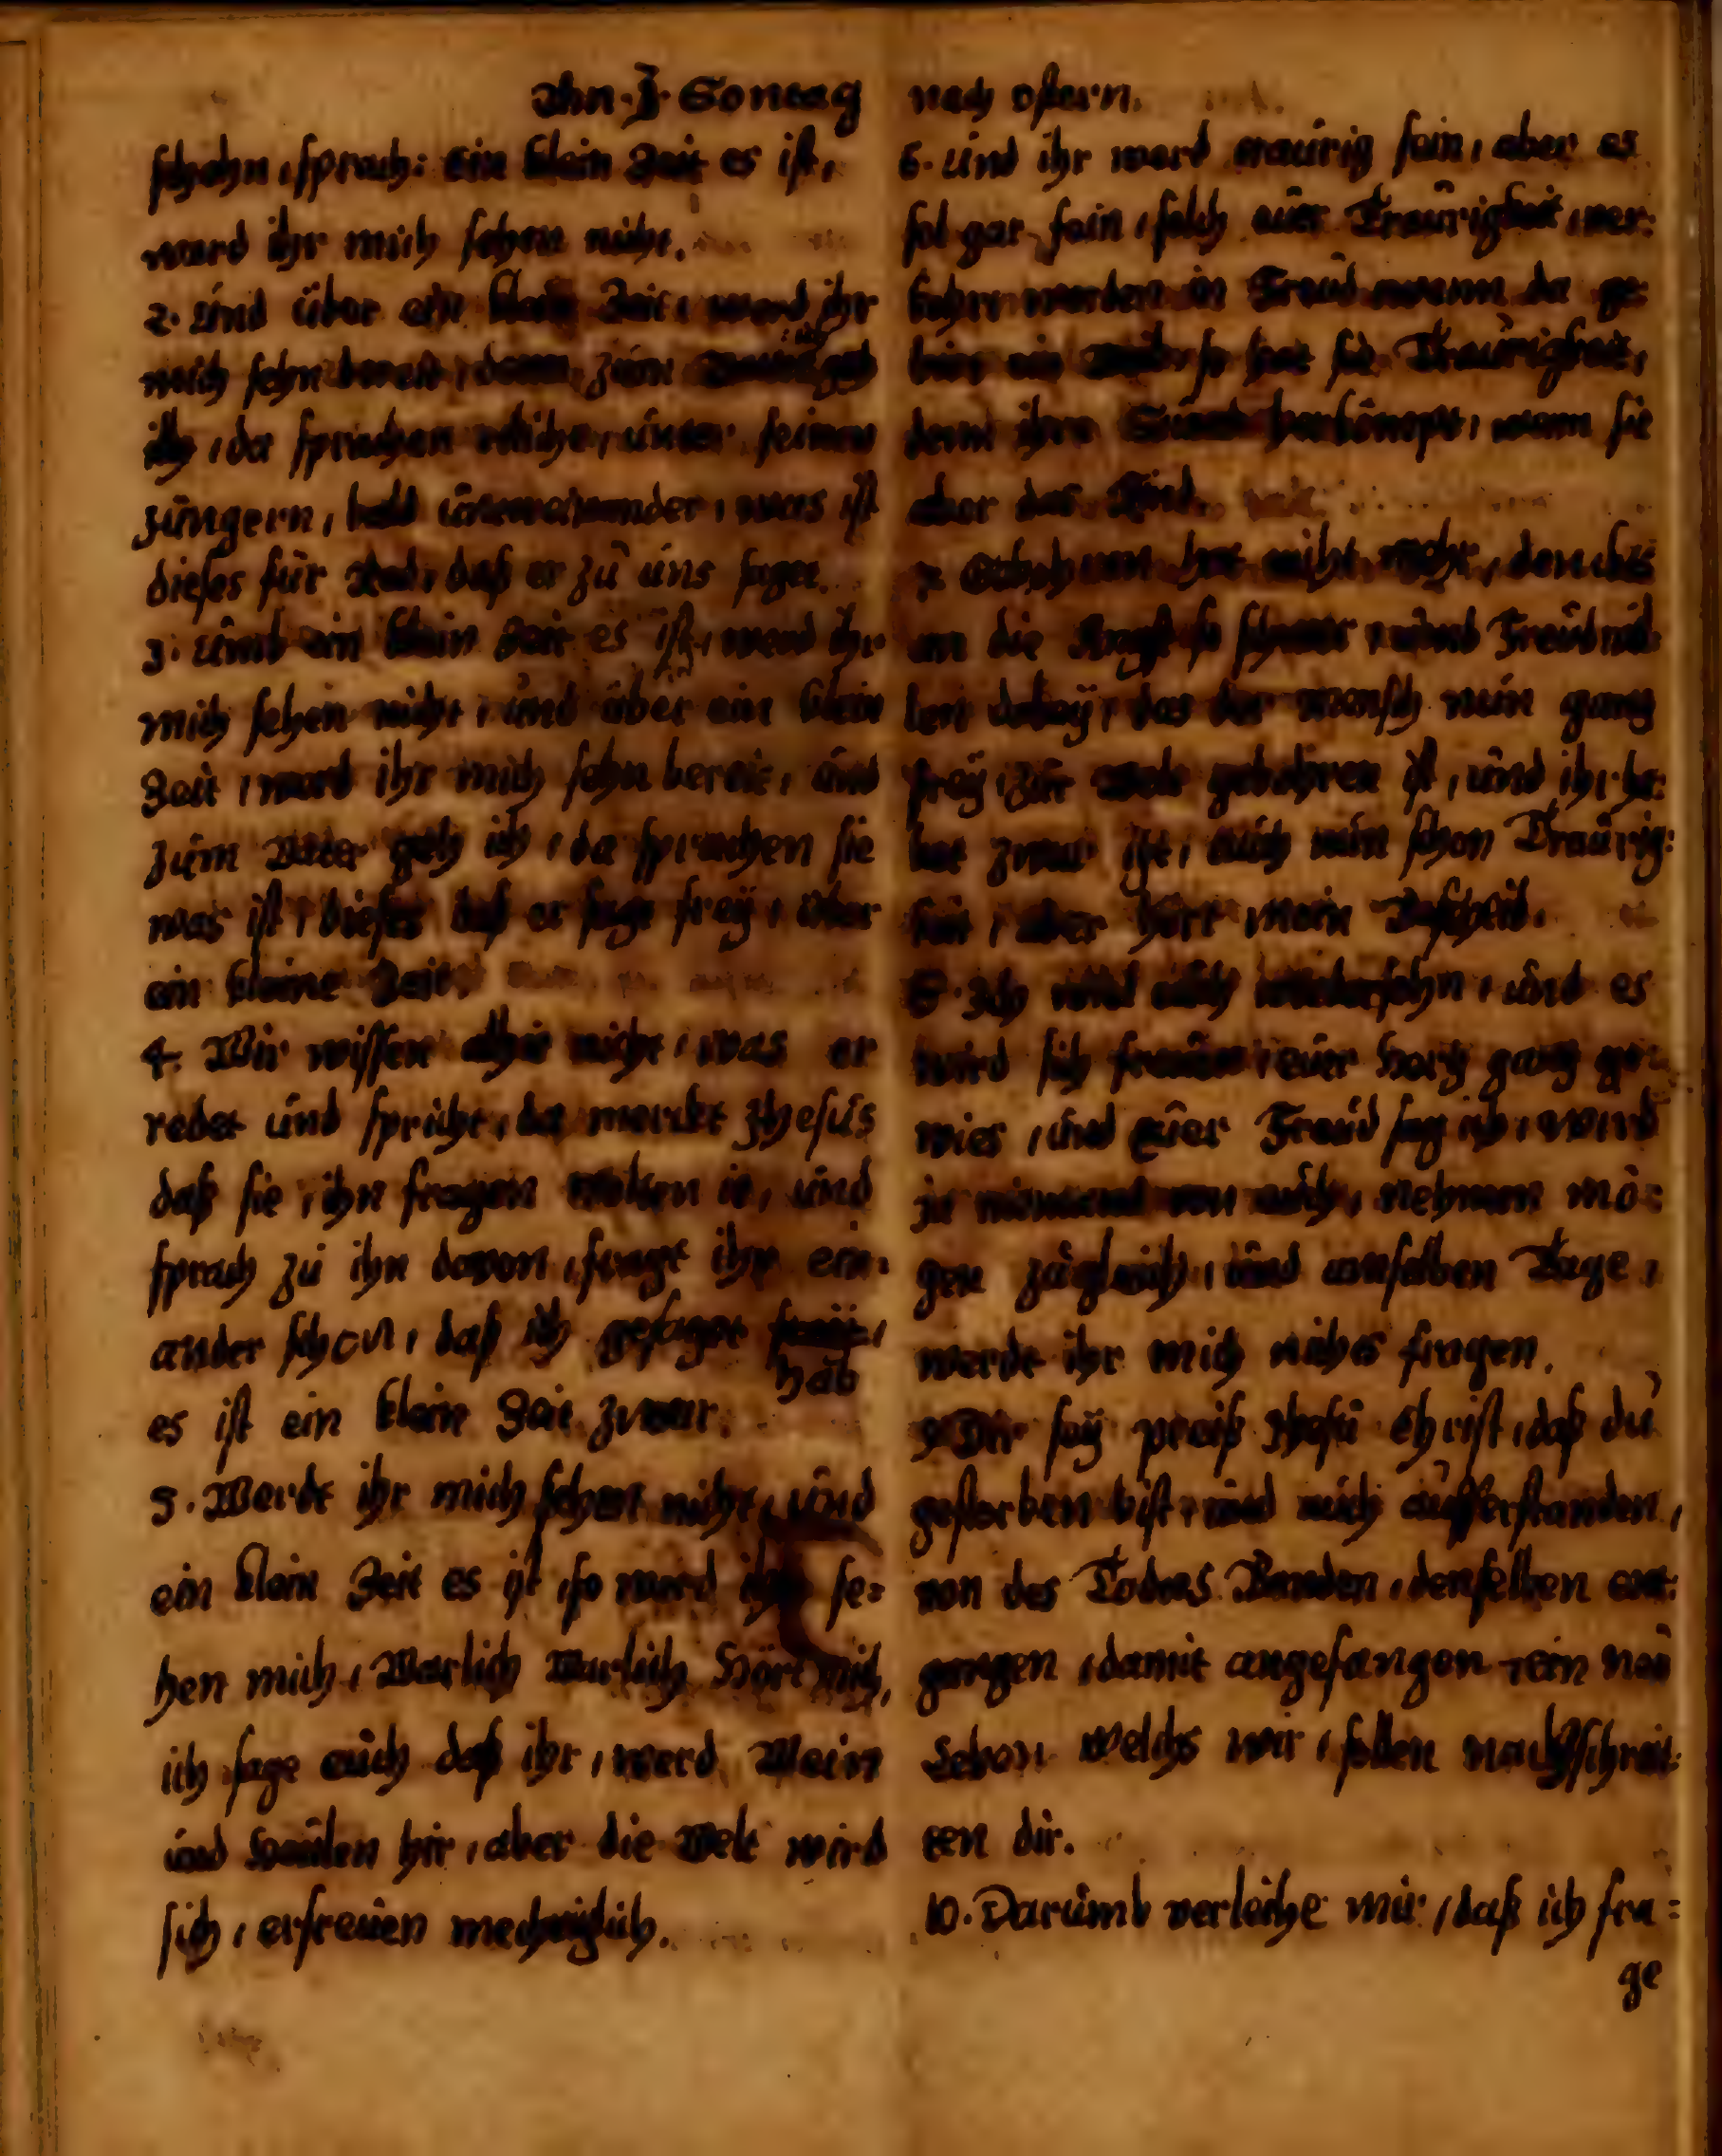 Ahn. 3. Sontag nach ostern.
schehn, sprach: ein klein Zeit es ist,
werd ihr mich sehen nicht.
2. Und über ein klein Zeit, werd ihr
mich sehn bereit, denn zum Vater geh
ich, da sprachen etliche, unter seinen
Jüngern, bald untereinander, was ist
dieses für Red, daß er zu uns saget.
3. Umb ein klein Zeit es ist, werd ihr
mich sehen nicht, und über ein klein
Zeit, werd ihr mich sehn bereit, und
zum Vater geh ich, da sprachen sie
was ist, dieses daß er sagt frey, über
ein kleine Zeit.
4. Wir wissen aber nicht, was er
redet und spricht, da merckt Jhesus
daß sie, ihn fragen wolten ie, und
sprach zu ihn davon, fragt ihr ein-
ander schon, daß ich gesaget hab
es ist ein klein Zeit zwar.
5. Werdt ihr mich sehen nicht, und
ein klein Zeit es ist, so werd ihr se=
hen mich, Warlich Warlich Hört mich,
ich sage euch daß ihr, werd Wein
und Heulen hir, aber die Welt wird
sich, erfreuen mechtiglich.
6. Und ihr werd traurig sein, aber es
sol gar fein, solch eur Traurigkeit, ver:
kehrt werden in Freud wenn da ge:
birt ein Weib, so hat sie Traurigkeit,
denn ihre Stund herkömpt, wenn sie
aber das Kind.
7. Gebohren hat nicht mehr, dencket
an die Angst so schwer, umb Freud wil:
len dabey, das der mensch nun gantz
frey, zur Welt gebohren ist, und ihr ha:
bet zwar itzt, auch nun schon Traurig:
keit, aber hört mein Bescheid.
8. Ich wil euch wiedersehn, und es
wird sich freuen, euer Hertz gantz ge:
wies, und euer Freud sag ich, wird
ja niemand von euch, nehmen mö:
gen zugleich, und anselben Tage,
werdt ihr mich nichts fragen.
9. Dir sey preiß Jhesu Christ, daß du
gestorben bist, und auch aufferstanden,
von des Todes Banden, denselben ent:
gangen, damit angefangen, ein neu
Leben welchs wir, sollen nachschreit:
ten dir.
10. Darumb verleihe mir, daß ich fra=
ge